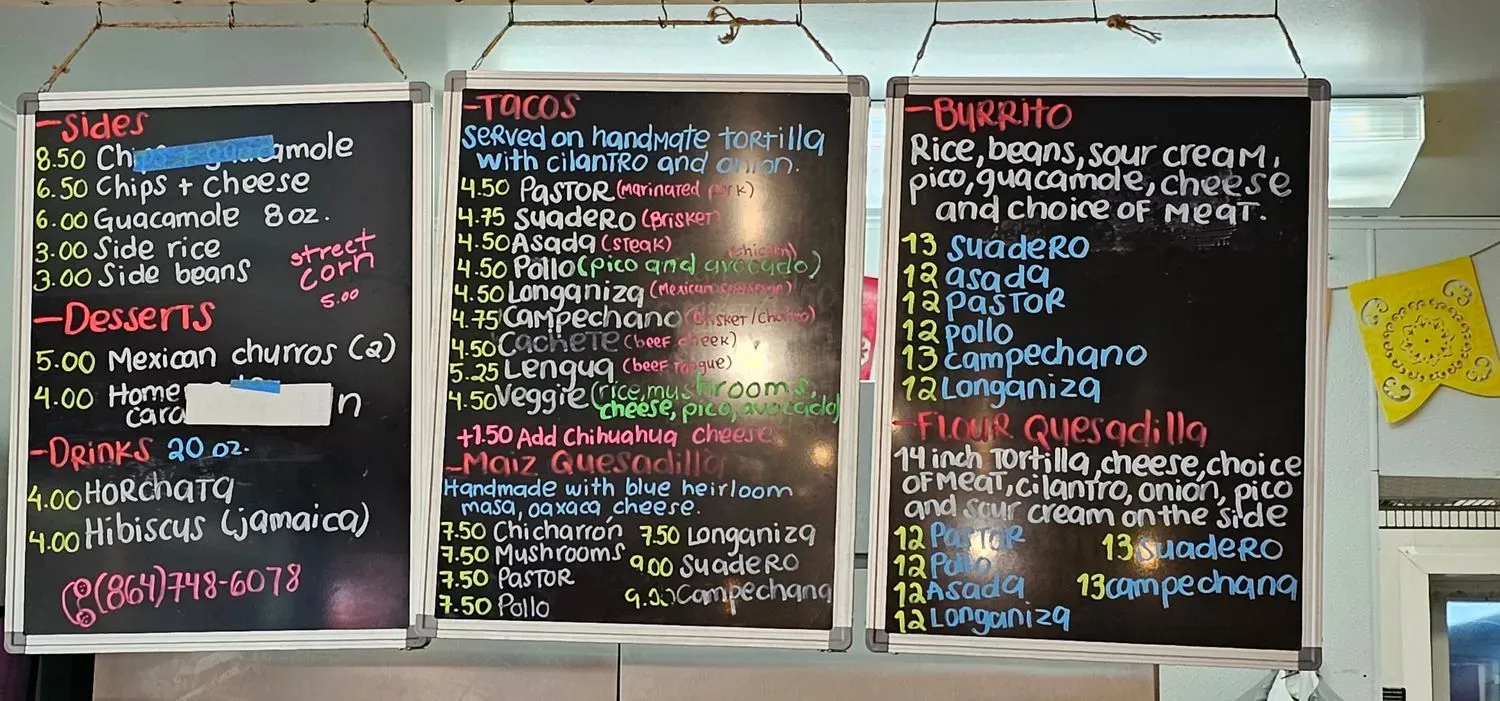 -Sides
8.50 Chips + guacamole
6.50 Chips + cheese
6.00 Guacamole 8 oz.
3.00 Side rice
3.00 Side beans
street
corn
5.00
-Desserts
5.00 Mexican churros (2)
4.00 Home
n
-Drinks 20 oz.
4.00 Horchata
4.00 Hibiscus (jamaica)
(864)748-6078
-Tacos
Served on handmate tortilla
with cilantro and onion.
4.50 Pastor (Marinated pork)
4.75 Suadero (Brisket)
4.50 Asada (steak)
(chicken)
4.50 Pollo (pico and avocado)
4.50 Longaniza (Mexican sausage)
4.75 Campechano (Brisket/Chorizo)
4.50 Cachete (beef cheek)
5.25 Lengua (beef tongue)
4.50 Veggie (rice, mushrooms,
cheese, pico, avocado)
+1.50 Add Chihuahua cheese
-Maiz Quesadilla
Handmade with blue heirloom
masa, oaxaca cheese.
7.50 Chicharrón 7.50 Longaniza
7.50 Mushrooms 9.00 Suadero
7.50 Pastor 9.00 Campechana
7.50 Pollo
-Burrito
Rice, beans, sour cream,
pico, guacamole, cheese
and choice of meat.
13 Suadero
12 asada
12 pastor
12 pollo
13 campechano
12 Longaniza
-Flour Quesadilla
14 inch tortilla, cheese, choice
of meat, cilantro, onion, pico
and sour cream on the side
12 Pastor 13 Suadero
12 Pollo
12 Asada 13 campechana
12 Longaniza